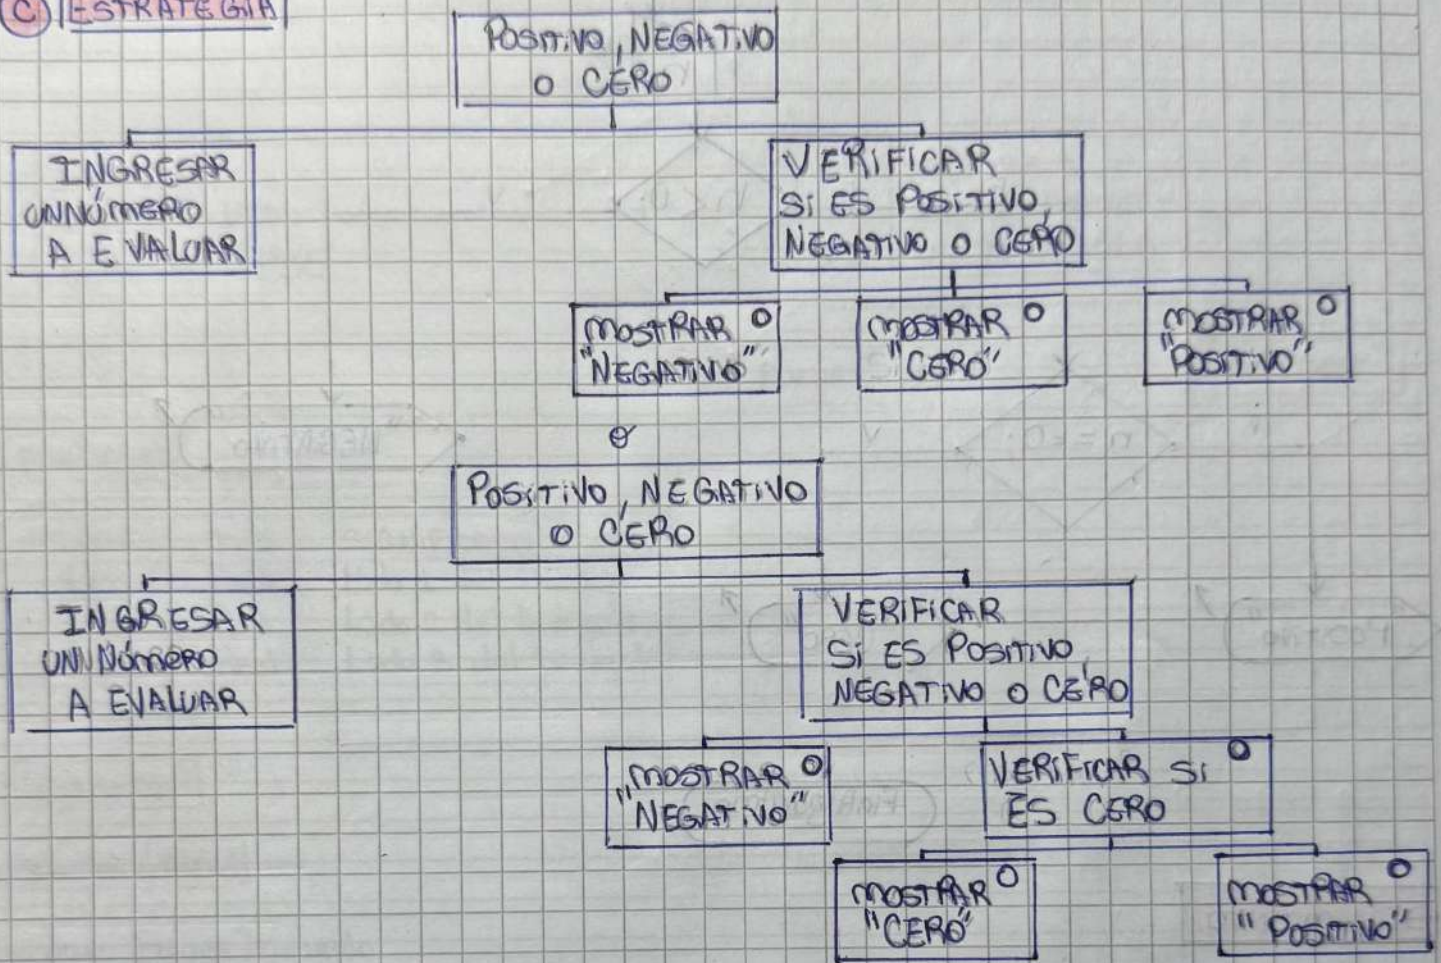 C) ESTRATEGIA
POSITIVO, NEGATIVO
O CERO
INGRESAR
UN NÚMERO
A EVALUAR
VERIFICAR
SI ES POSITIVO,
NEGATIVO O CERO
MOSTRAR O
"NEGATIVO"
MOSTRAR O
"CERO"
MOSTRAR O
"POSITIVO"
O
POSITIVO, NEGATIVO
O CERO
INGRESAR
UN NÚMERO
A EVALUAR
VERIFICAR
SI ES POSITIVO,
NEGATIVO O CERO
MOSTRAR O
"NEGATIVO"
VERIFICAR SI O
ES CERO
MOSTRAR O
"CERO"
MOSTRAR O
"POSITIVO"